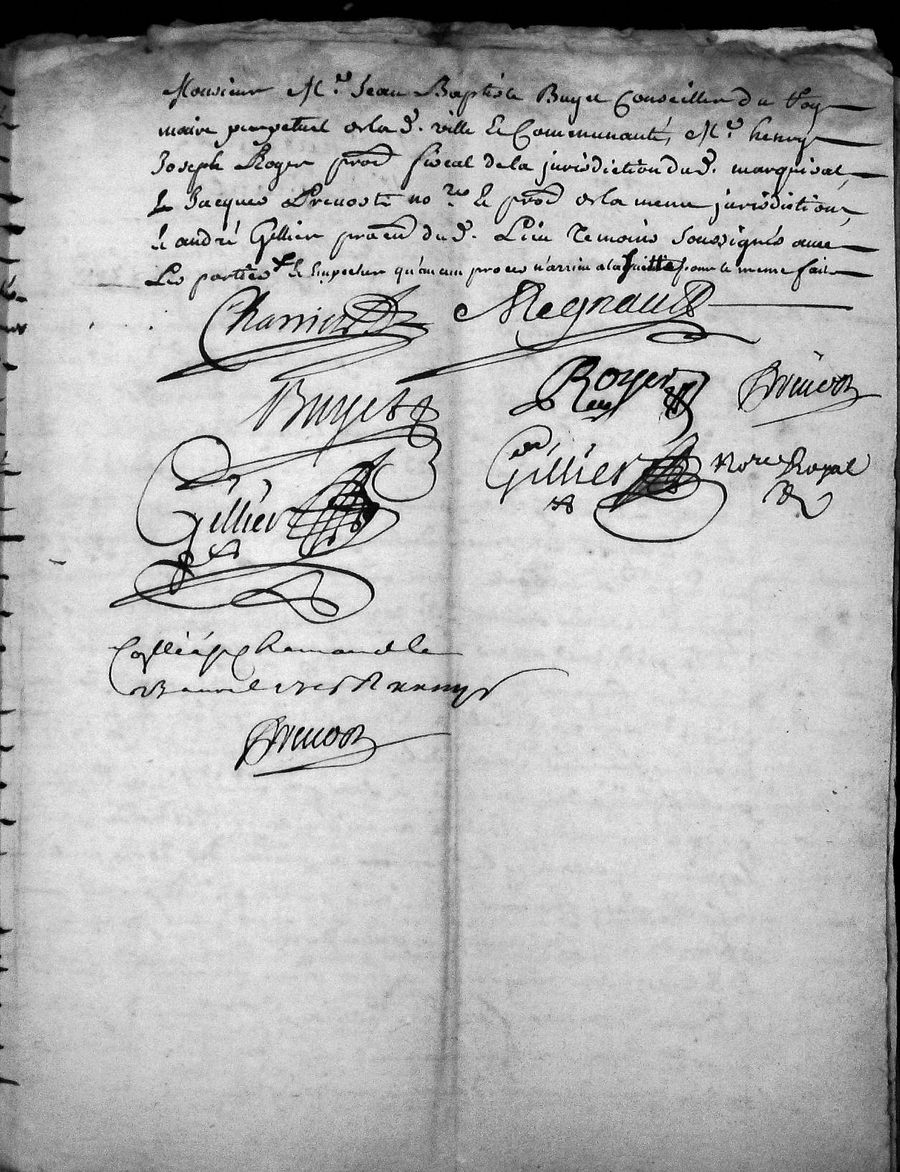 Monsieur Mr. Jean Baptiste Buyet Conseiller du Roy
maire perpetuel de la d. ville et Communauté, Mr. henry
Joseph Royer procr fiscal de la jurisdiction du d. marquisat,
et Jacques Prevost no.re et procr de la meme jurisdiction,
et andré Gillier praen du d. Lieu temoins soussignés avec
Les parties et qu'aucun proces n'arrive a la suitte pour le meme fait
Charrier Regnault
Buyet Royer Prevost
Gillier Gillier Nore Royal
Prevost